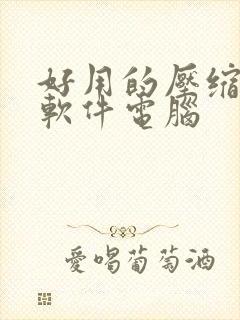 好用的壓縮
軟件電腦
愛喝葡萄酒